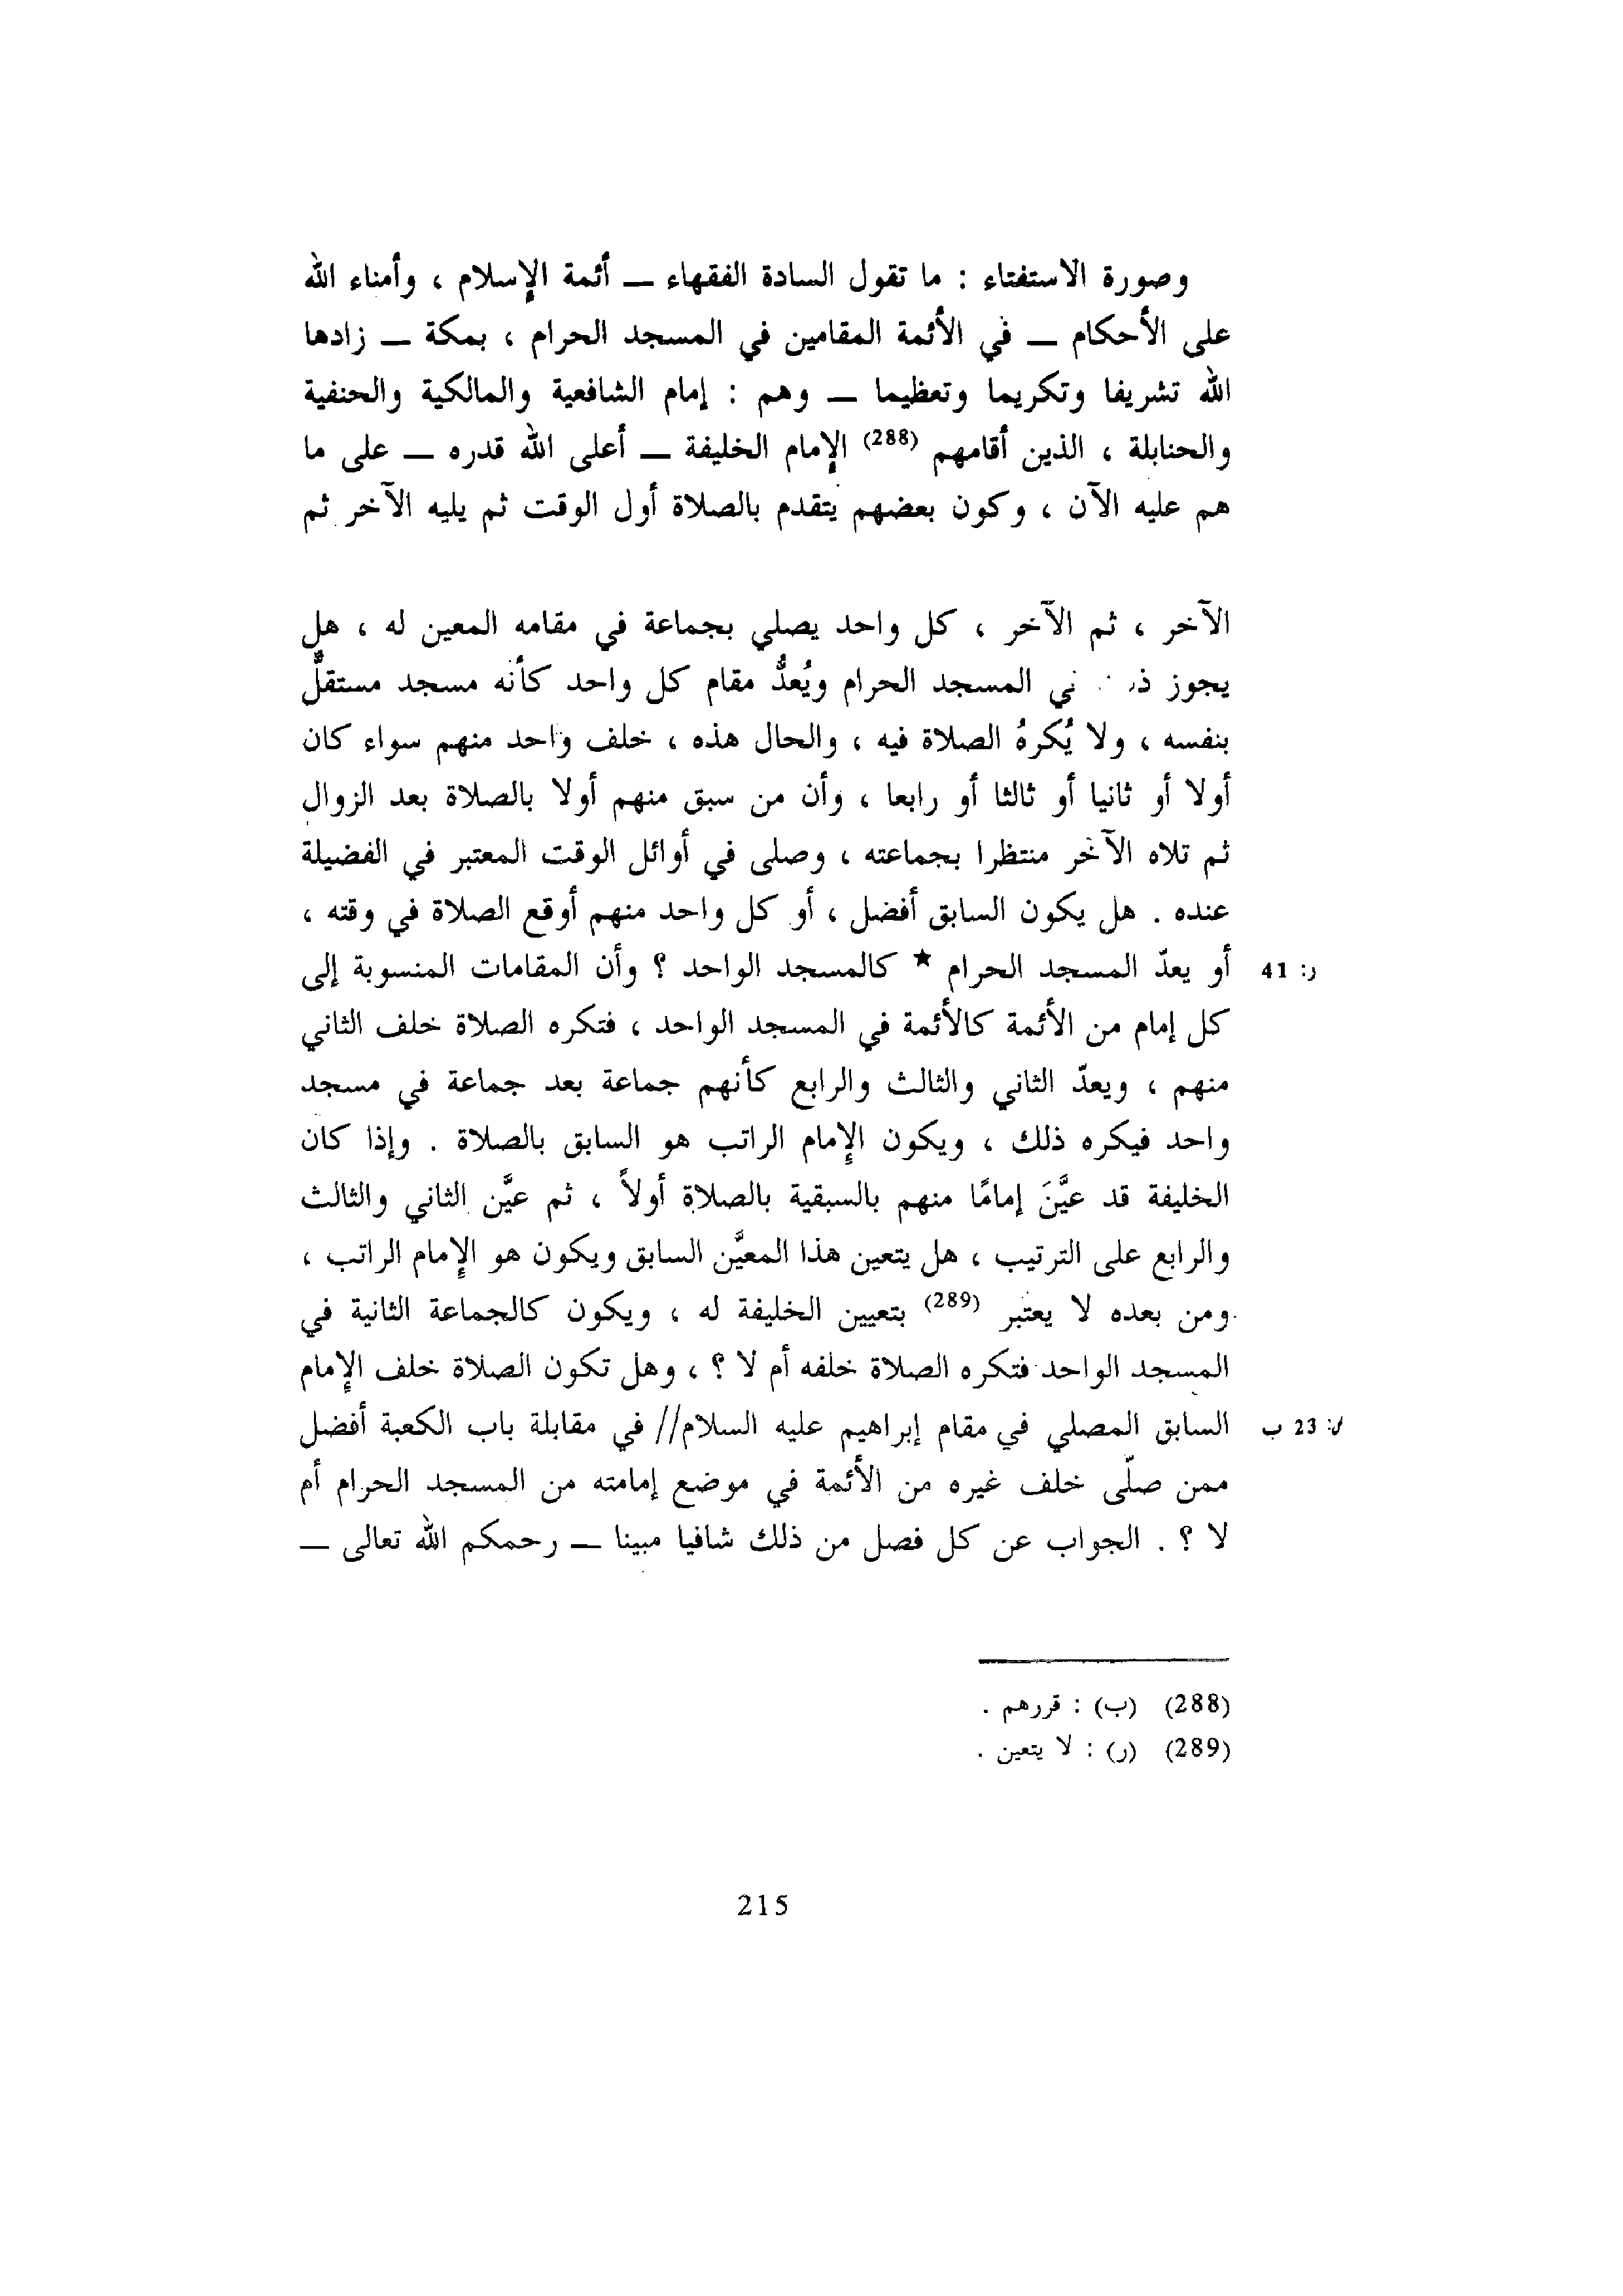 وصورة الاستفتاء : ما تقول السادة الفقهاء — أئمة الإسلام ، وأمناء الله
على الأحكام — في الأئمة المقامين في المسجد الحرام ، بمكة — زادها
الله تشريفا وتكريما وتعظيما — وهم : إمام الشافعية والمالكية والحنفية
والحنابلة ، الذين أقامهم (288) الإمام الخليفة — أعلى الله قدره — على ما
هم عليه الآن ، وكون بعضهم يتقدم بالصلاة أول الوقت ثم يليه الآخر ثم
الآخر ، ثم الآخر ، كل واحد يصلي بجماعة في مقامه المعين له ، هل
يجوز في المسجد الحرام ويُعدُّ مقام كل واحد كأنه مسجد مستقلٌّ
بنفسه ، ولا يُكرهُ الصلاة فيه ، والحال هذه ، خلف واحد منهم سواء كان
أولا أو ثانيا أو ثالثا أو رابعا ، وأن من سبق منهم أولا بالصلاة بعد الزوال
ثم تلاه الآخر منتظرا بجماعته ، وصلى في أوائل الوقت المعتبر في الفضيلة
عنده . هل يكون السابق أفضل ، أو كل واحد منهم أوقع الصلاة في وقته ،
ر: 41 أو يعدّ المسجد الحرام ★ كالمسجد الواحد ؟ وأن المقامات المنسوبة إلى
كل إمام من الأئمة كالأئمة في المسجد الواحد ، فتكره الصلاة خلف الثاني
منهم ، ويعدّ الثاني والثالث والرابع كأنهم جماعة بعد جماعة في مسجد
واحد فيكره ذلك ، ويكون الإمام الراتب هو السابق بالصلاة . وإذا كان
الخليفة قد عيَّنَ إمامًا منهم بالسبقية بالصلاة أولاً ، ثم عيَّن الثاني والثالث
والرابع على الترتيب ، هل يتعين هذا المعيَّن السابق ويكون هو الإمام الراتب ،
ومن بعده لا يعتبر (289) بتعيين الخليفة له ، ويكون كالجماعة الثانية في
المسجد الواحد فتكره الصلاة خلفه أم لا ؟ ، وهل تكون الصلاة خلف الإمام
23 ب السابق المصلي في مقام إبراهيم عليه السلام// في مقابلة باب الكعبة أفضل
ممن صلّى خلف غيره من الأئمة في موضع إمامته من المسجد الحرام أم
لا ؟ . الجواب عن كل فصل من ذلك شافيا مبينا — رحمكم الله تعالى —
(288) (ب) : قررهم .
(289) (ر) : لا يتعين .
215